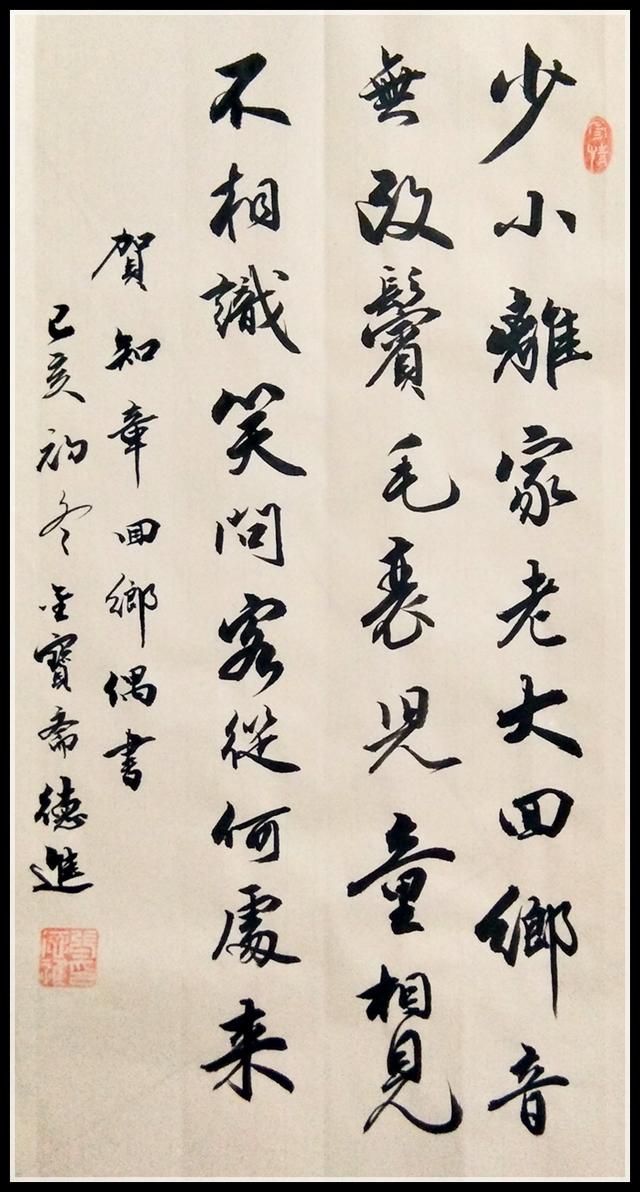 少小離家老大回鄉音
無改鬢毛衰児童相見
不相識笑問客從何處来
賀知章回鄉偶書
己亥初冬寶斋德進